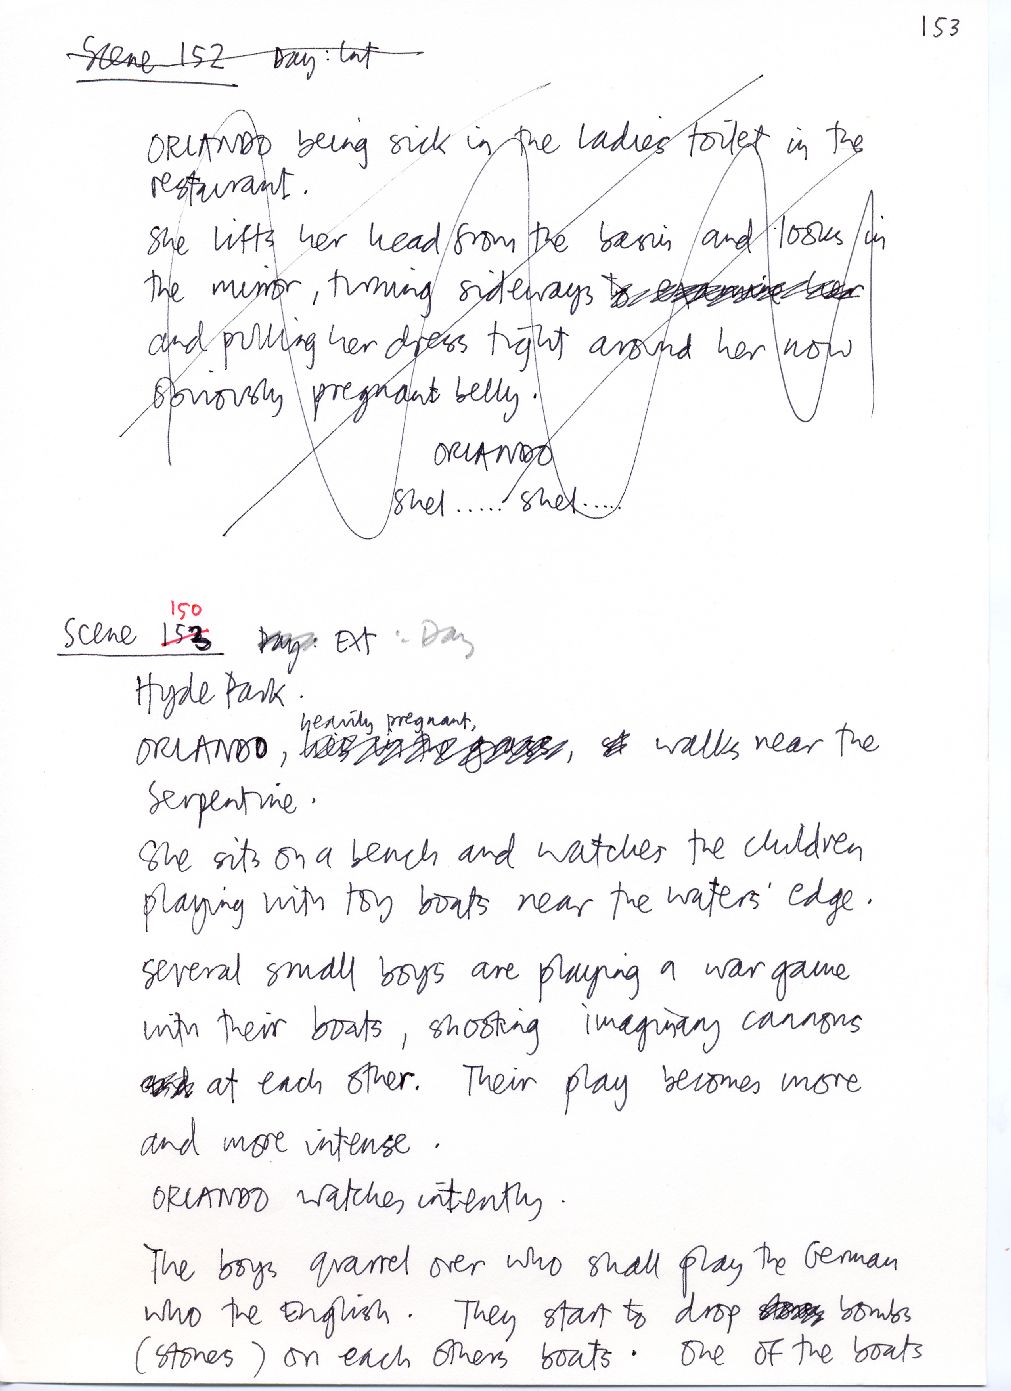 153
Scene 152 Day: Int
ORLANDO being sick in the ladies toilet in the
restaurant.
She lifts her head from the basin and looks in
the mirror, turning sideways to examine her
and pulling her dress tight around her now
obviously pregnant belly.
ORLANDO
Shel ..... Shel .....
150
Scene 153 Day: Ext : Day
Hyde Park.
heavily pregnant,
ORLANDO, lies in the grass, walks near the
Serpentine.
She sits on a bench and watches the children
playing with toy boats near the waters' edge.
Several small boys are playing a war game
with their boats, shooting imaginary cannons
and at each other. Their play becomes more
and more intense.
ORLANDO watches intently.
The boys quarrel over who shall play the German
who the English. They start to drop stones bombs
(stones) on each others boats. One of the boats